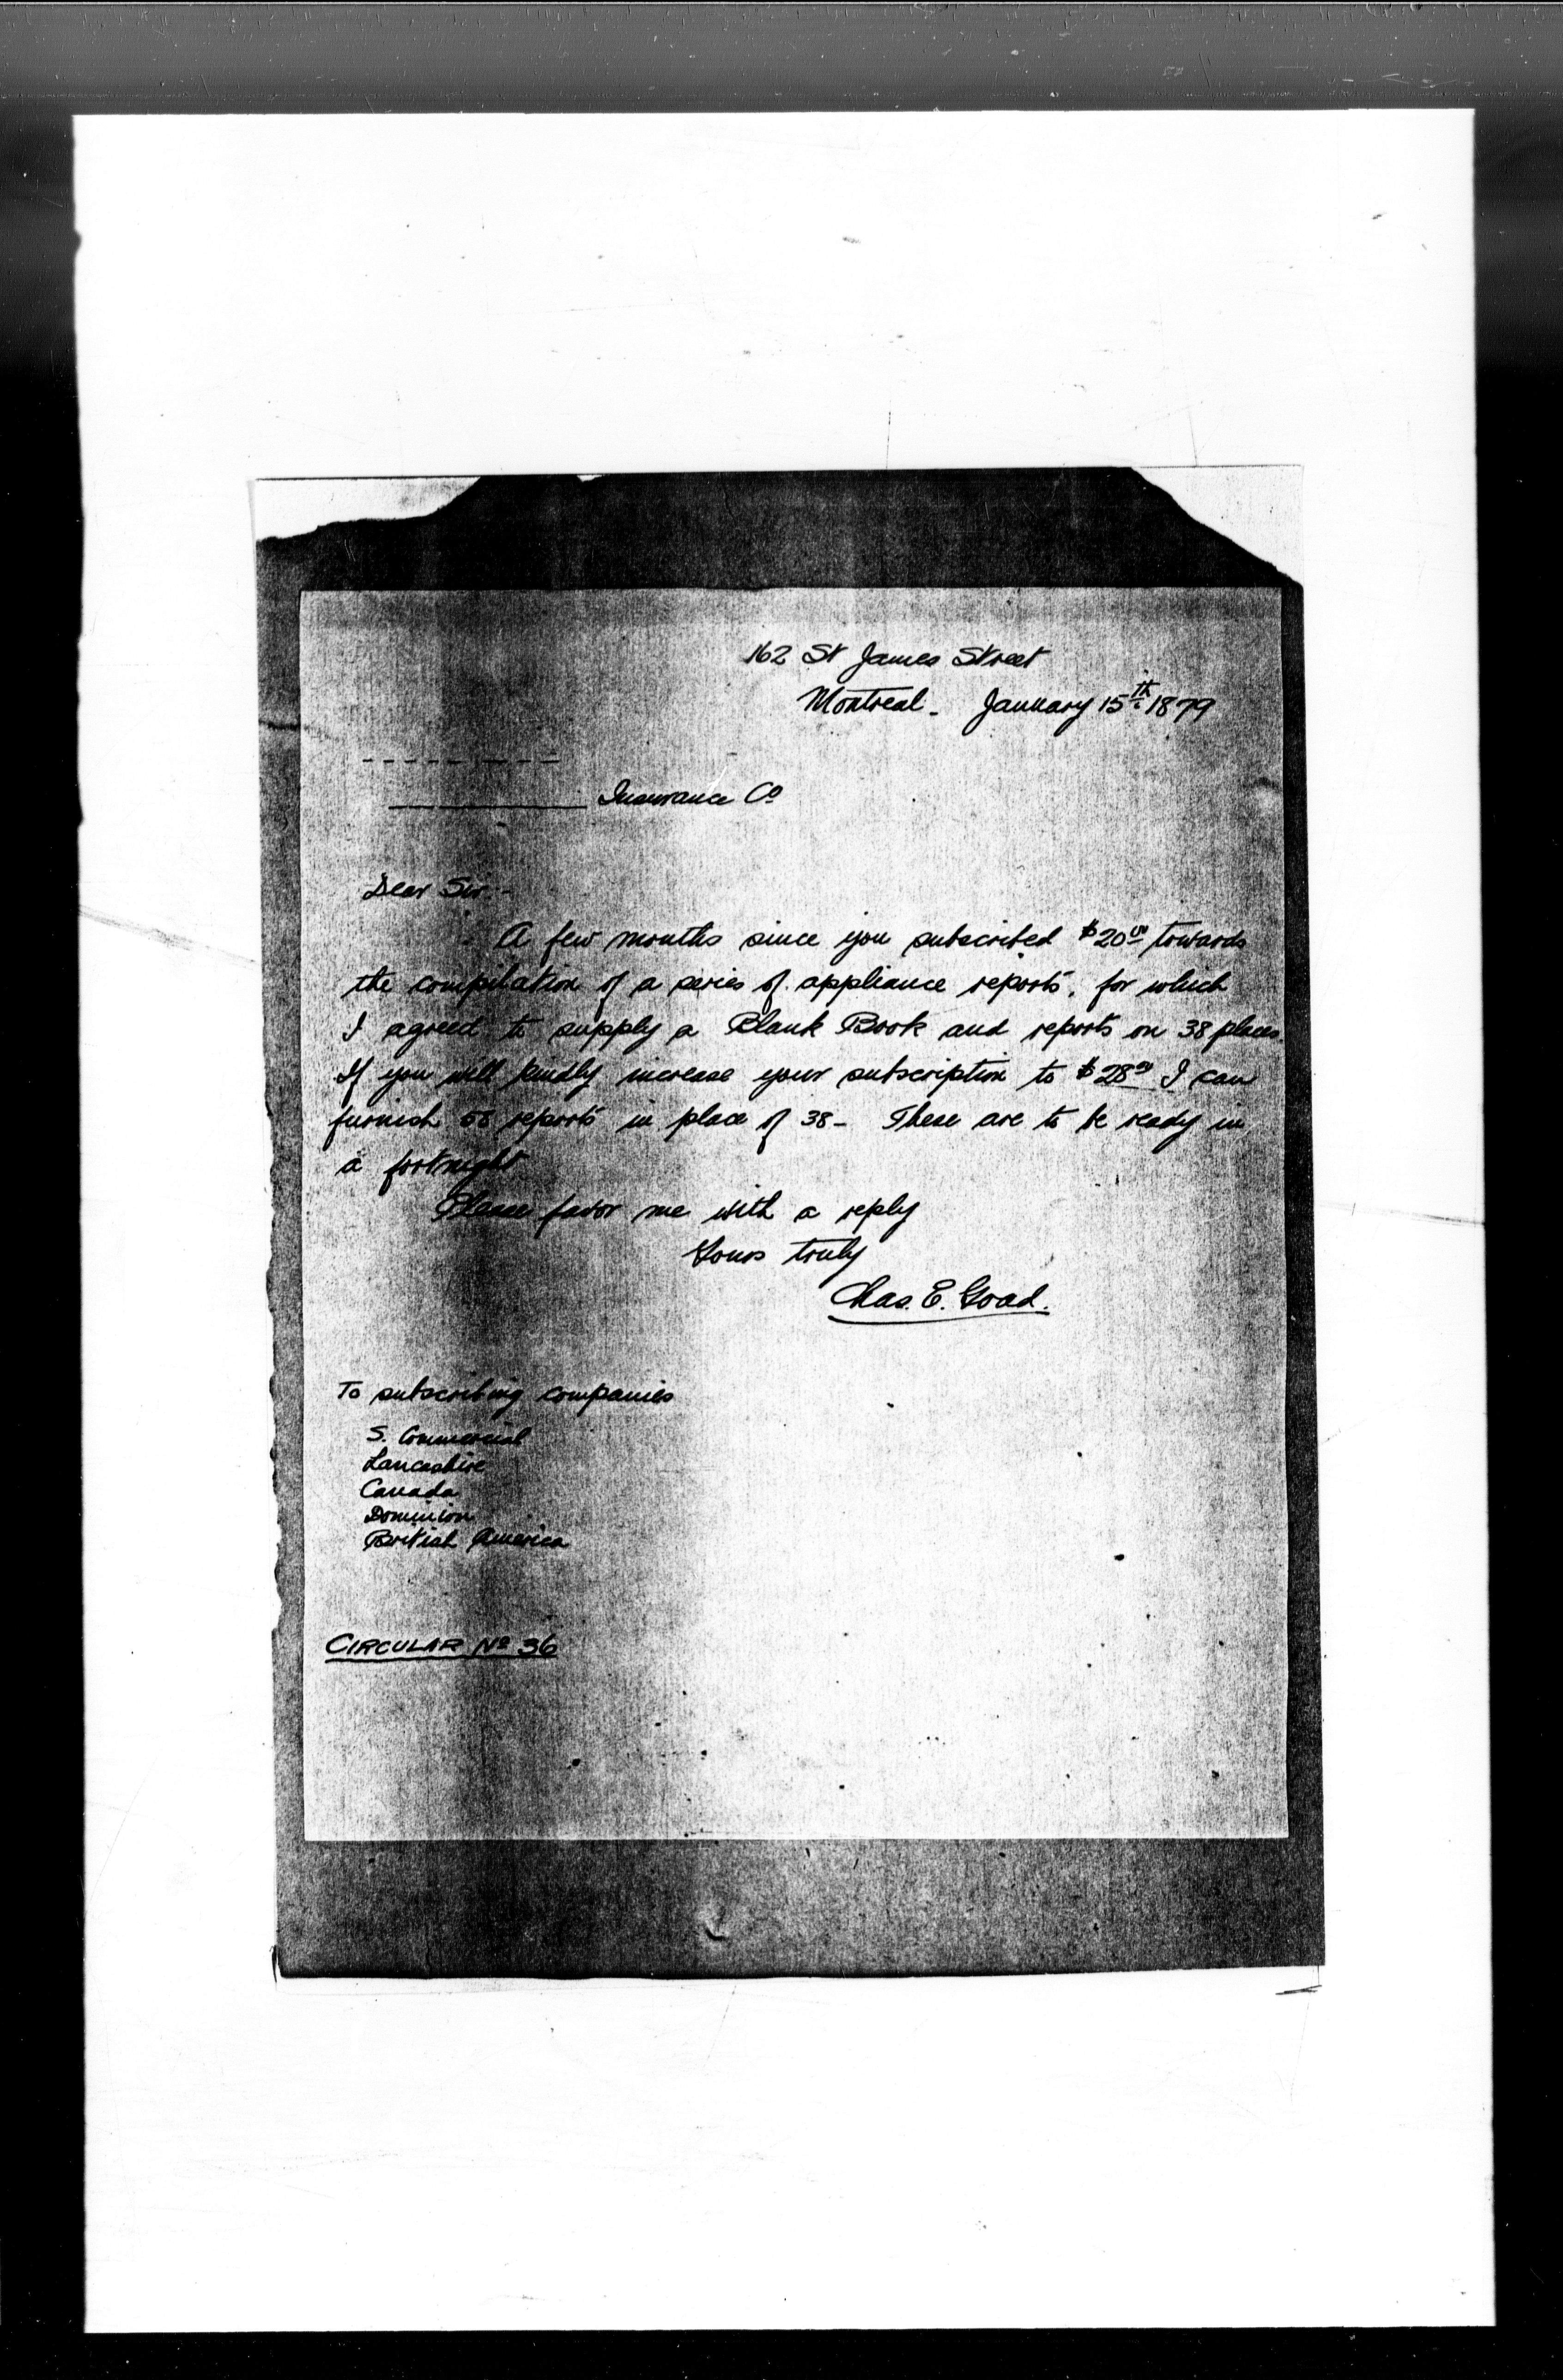 162 St James Street
Montreal - January 15th 1879
Insurance Co
Dear Sir:-
A few months since you subscribed $20.00 towards
the compilation of a series of appliance reports, for which
I agreed to supply a Blank Book and reports on 38 places.
If you will kindly increase your subscription to $28.00 I can
furnish reports in place of 38 - These are to be ready in
a fortnight
Please favor me with a reply
Yours truly
Chas. E. Goad.
To subscribing companies
S. Commercial
Lancashire
Canada
Dominion
British America
CIRCULAR No 36